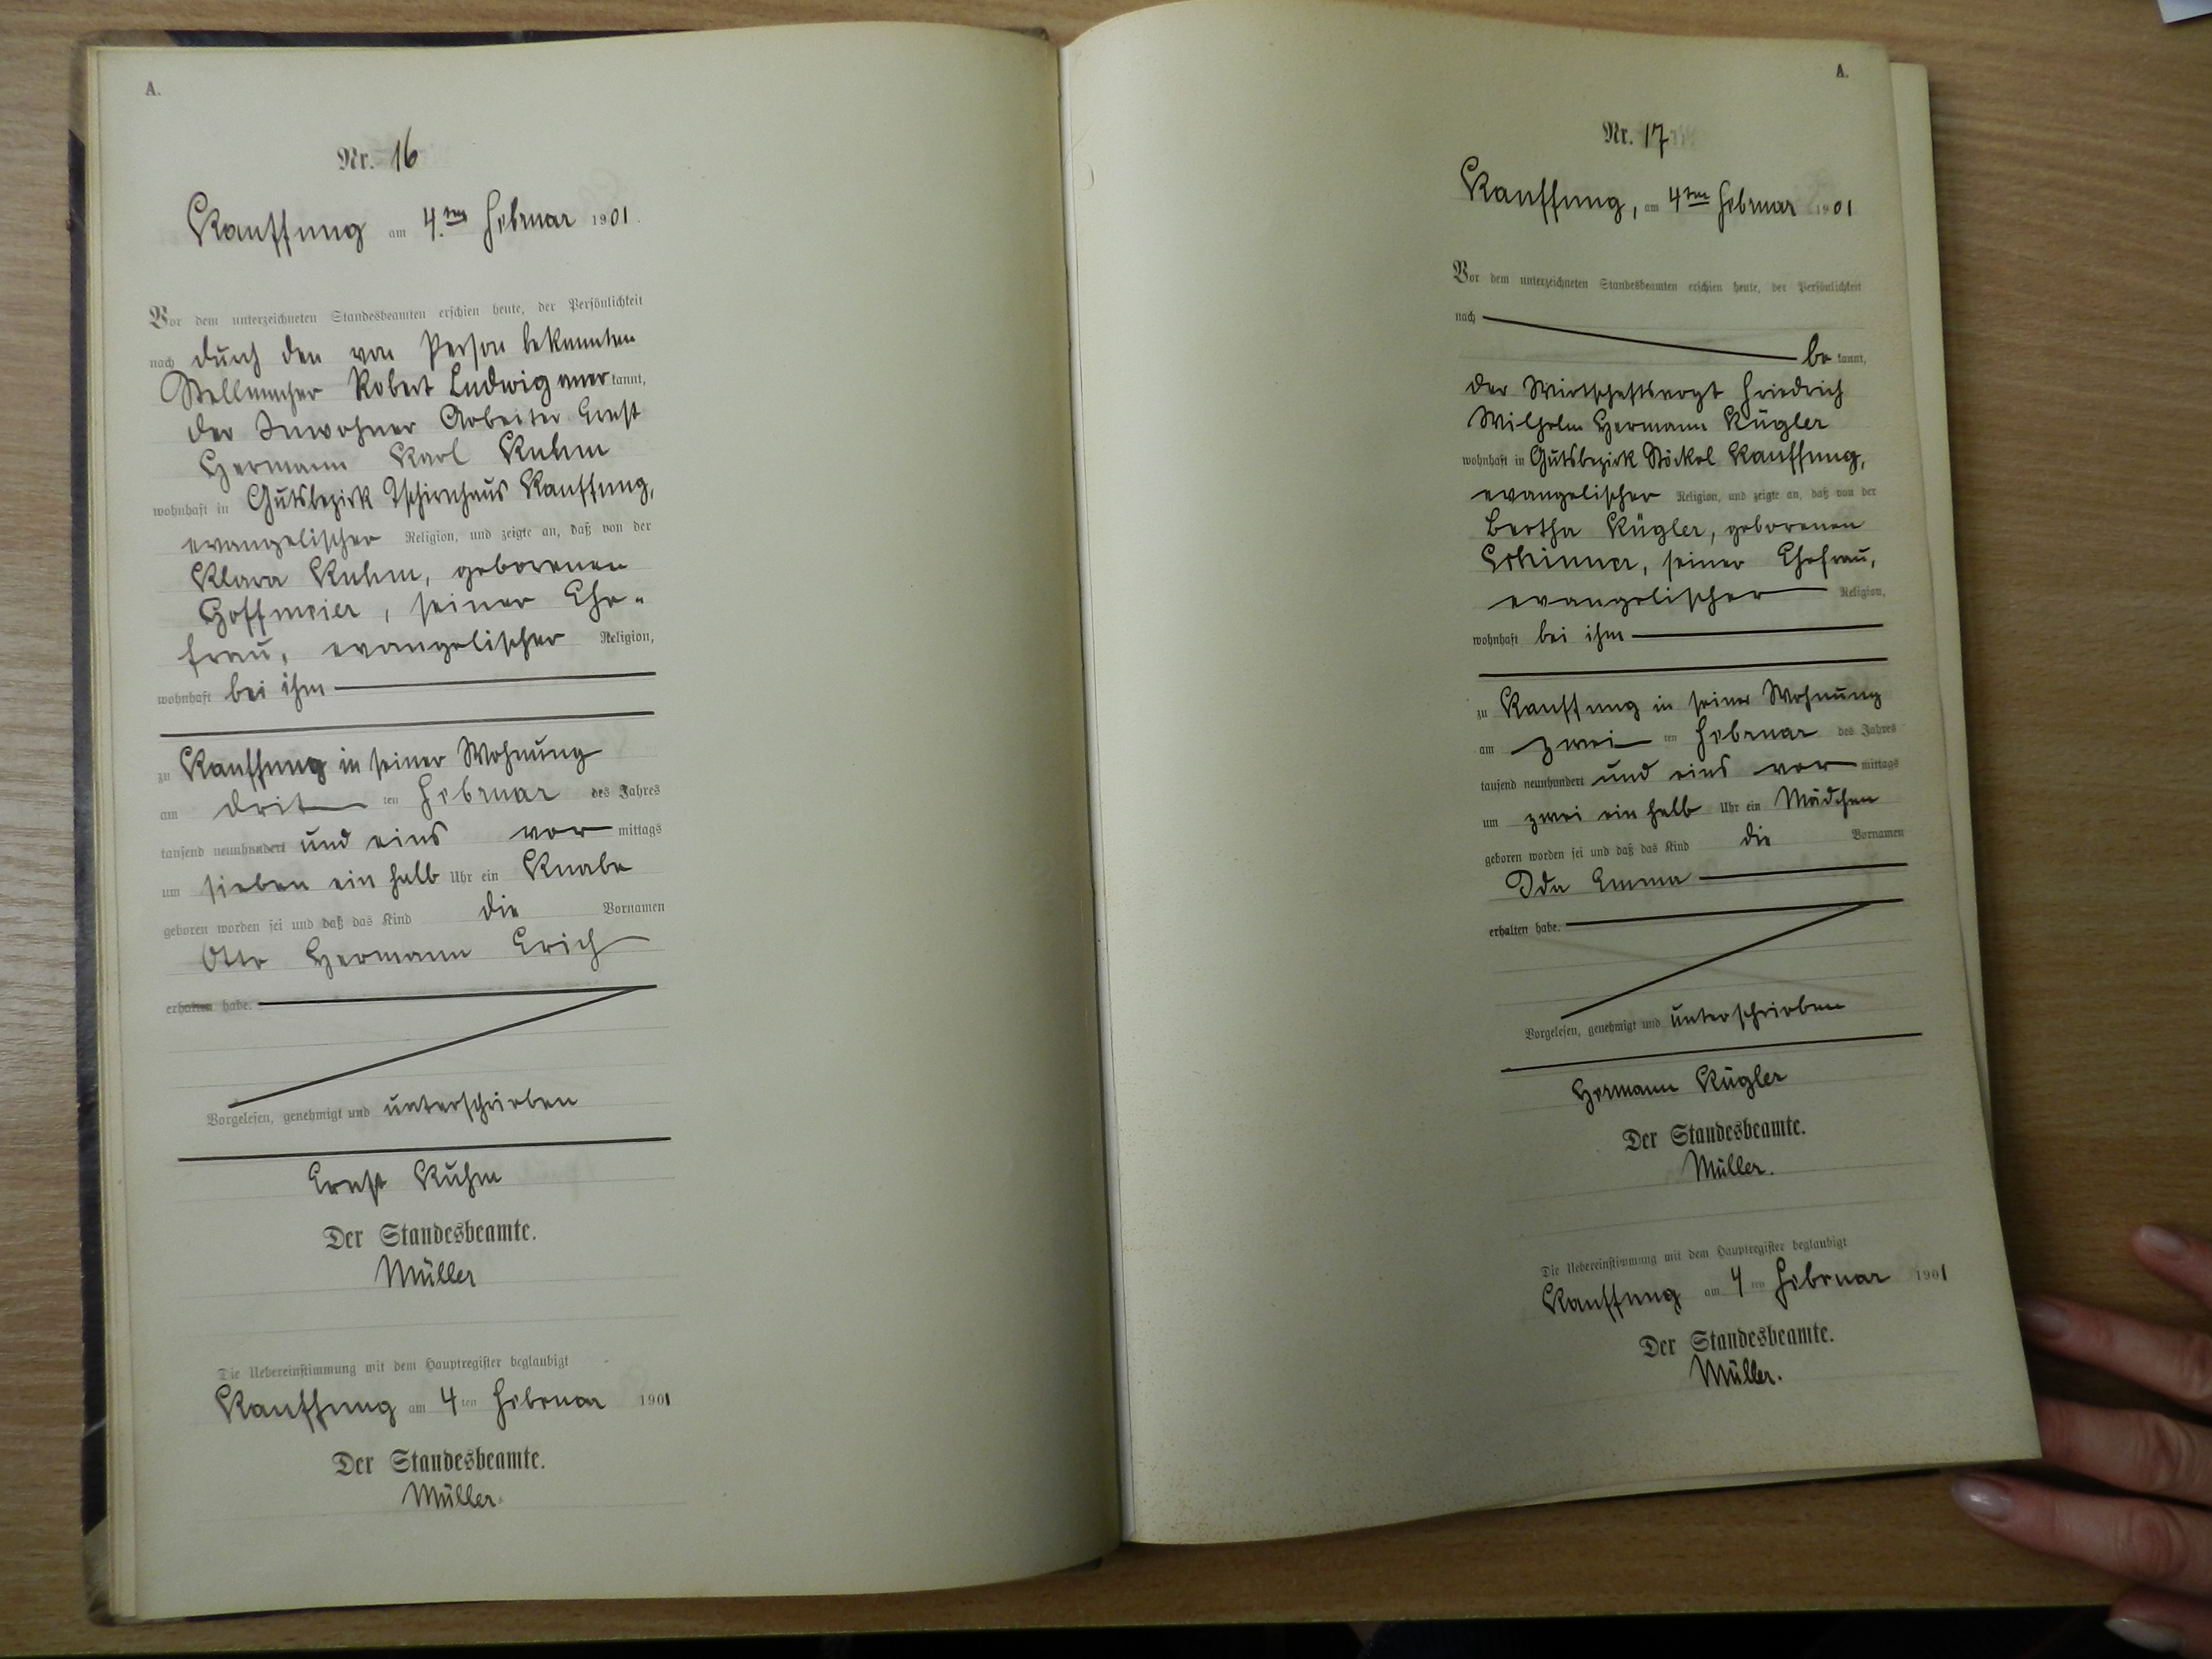 A.
Nr. 16
Kauffung am 4.ten Februar 1901.
Vor dem unterzeichneten Standesbeamten erschien heute, der Persönlichkeit
nach durch den von Person bekannten
Stellmacher Robert Ludwig anerkannt,
der Inwohner Arbeiter Ernst
Hermann Karl Kuhm
wohnhaft in Gutsbezirk Tschirnhaus Kauffung,
evangelischer Religion, und zeigte an, daß von der
Klara Kuhm, geborenen
Hoffmeier, seiner Ehe-
frau, evangelischer Religion,
wohnhaft bei ihm
zu Kauffung in seiner Wohnung
am dritten Februar des Jahres
tausend neunhundert und eins vormittags
um sieben ein halb Uhr ein Knabe
geboren worden sei und daß das Kind die Vornamen
Otto Hermann Erich
erhalten habe.
Vorgelesen, genehmigt und unterschrieben
Ernst Kuhm
Der Standesbeamte.
Müller
Die Uebereinstimmung mit dem Hauptregister beglaubigt
Kauffung am 4ten Februar 1901
Der Standesbeamte.
Müller.
A.
Nr. 17
Kauffung, am 4ten Februar 1901
Vor dem unterzeichneten Standesbeamten erschien heute, der Persönlichkeit
nach
bekannt,
der Wirtschaftsvogt Friedrich
Wilhelm Hermann Kügler
wohnhaft in Gutsbezirk Stöckel Kauffung,
evangelischer Religion, und zeigte an, daß von der
Bertha Kügler, geborenen
seiner Ehefrau,
evangelischer Religion,
wohnhaft bei ihm
zu Kauffung in seiner Wohnung
am zweiten Februar des Jahres
tausend neunhundert und eins vormittags
um zwei ein halb Uhr ein Mädchen
geboren worden sei und daß das Kind die Vornamen
Ida Emma
erhalten habe.
Vorgelesen, genehmigt und unterschrieben
Hermann Kügler
Der Standesbeamte.
Müller.
Die Uebereinstimmung mit dem Hauptregister beglaubigt
Kauffung am 4ten Februar 1901
Der Standesbeamte.
Müller.